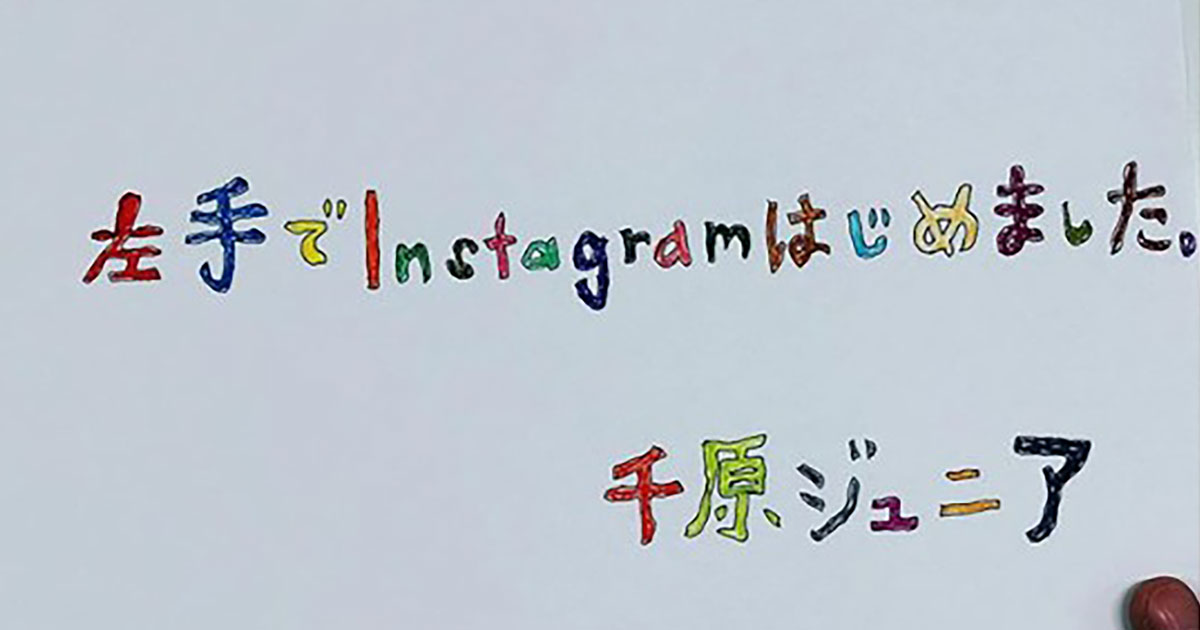 左手でInstagramはじめました。
千原ジュニア